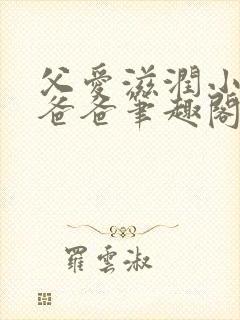 父愛滋潤小
爸爸筆趣閣
羅雲淑